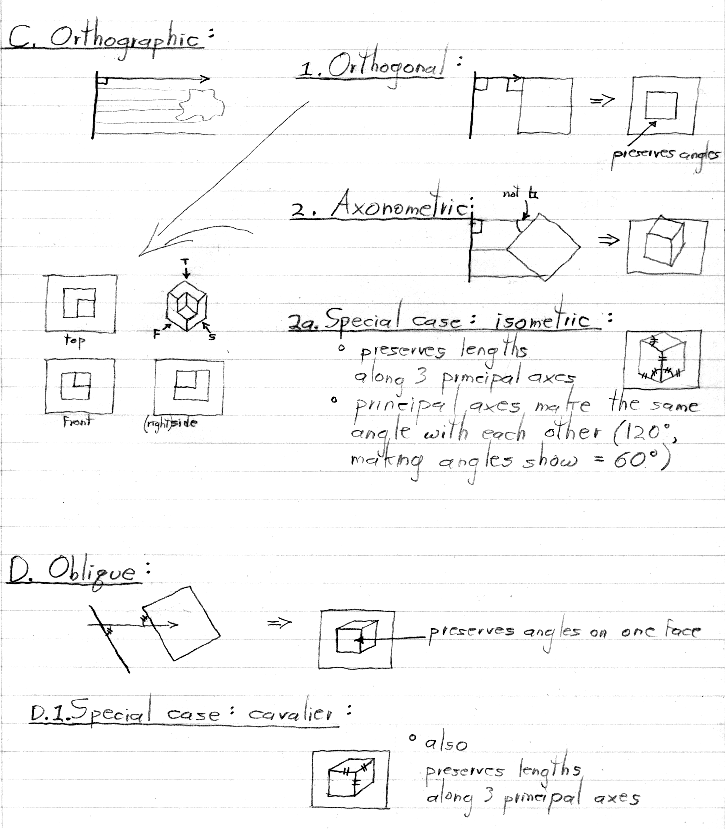 C. Orthographic:
1. Orthogonal:
=>
preserves angles
2. Axonometric:
not
=>
T
F
S
top
front
(right)side
2a. Special case: isometric:
° preserves lengths
along 3 principal axes
° principal axes make the same
angle with each other (120°,
making angles show = 60°)
D. Oblique:
=>
preserves angles on one face
D.1. Special case: cavalier:
° also
preserves lengths
along 3 principal axes